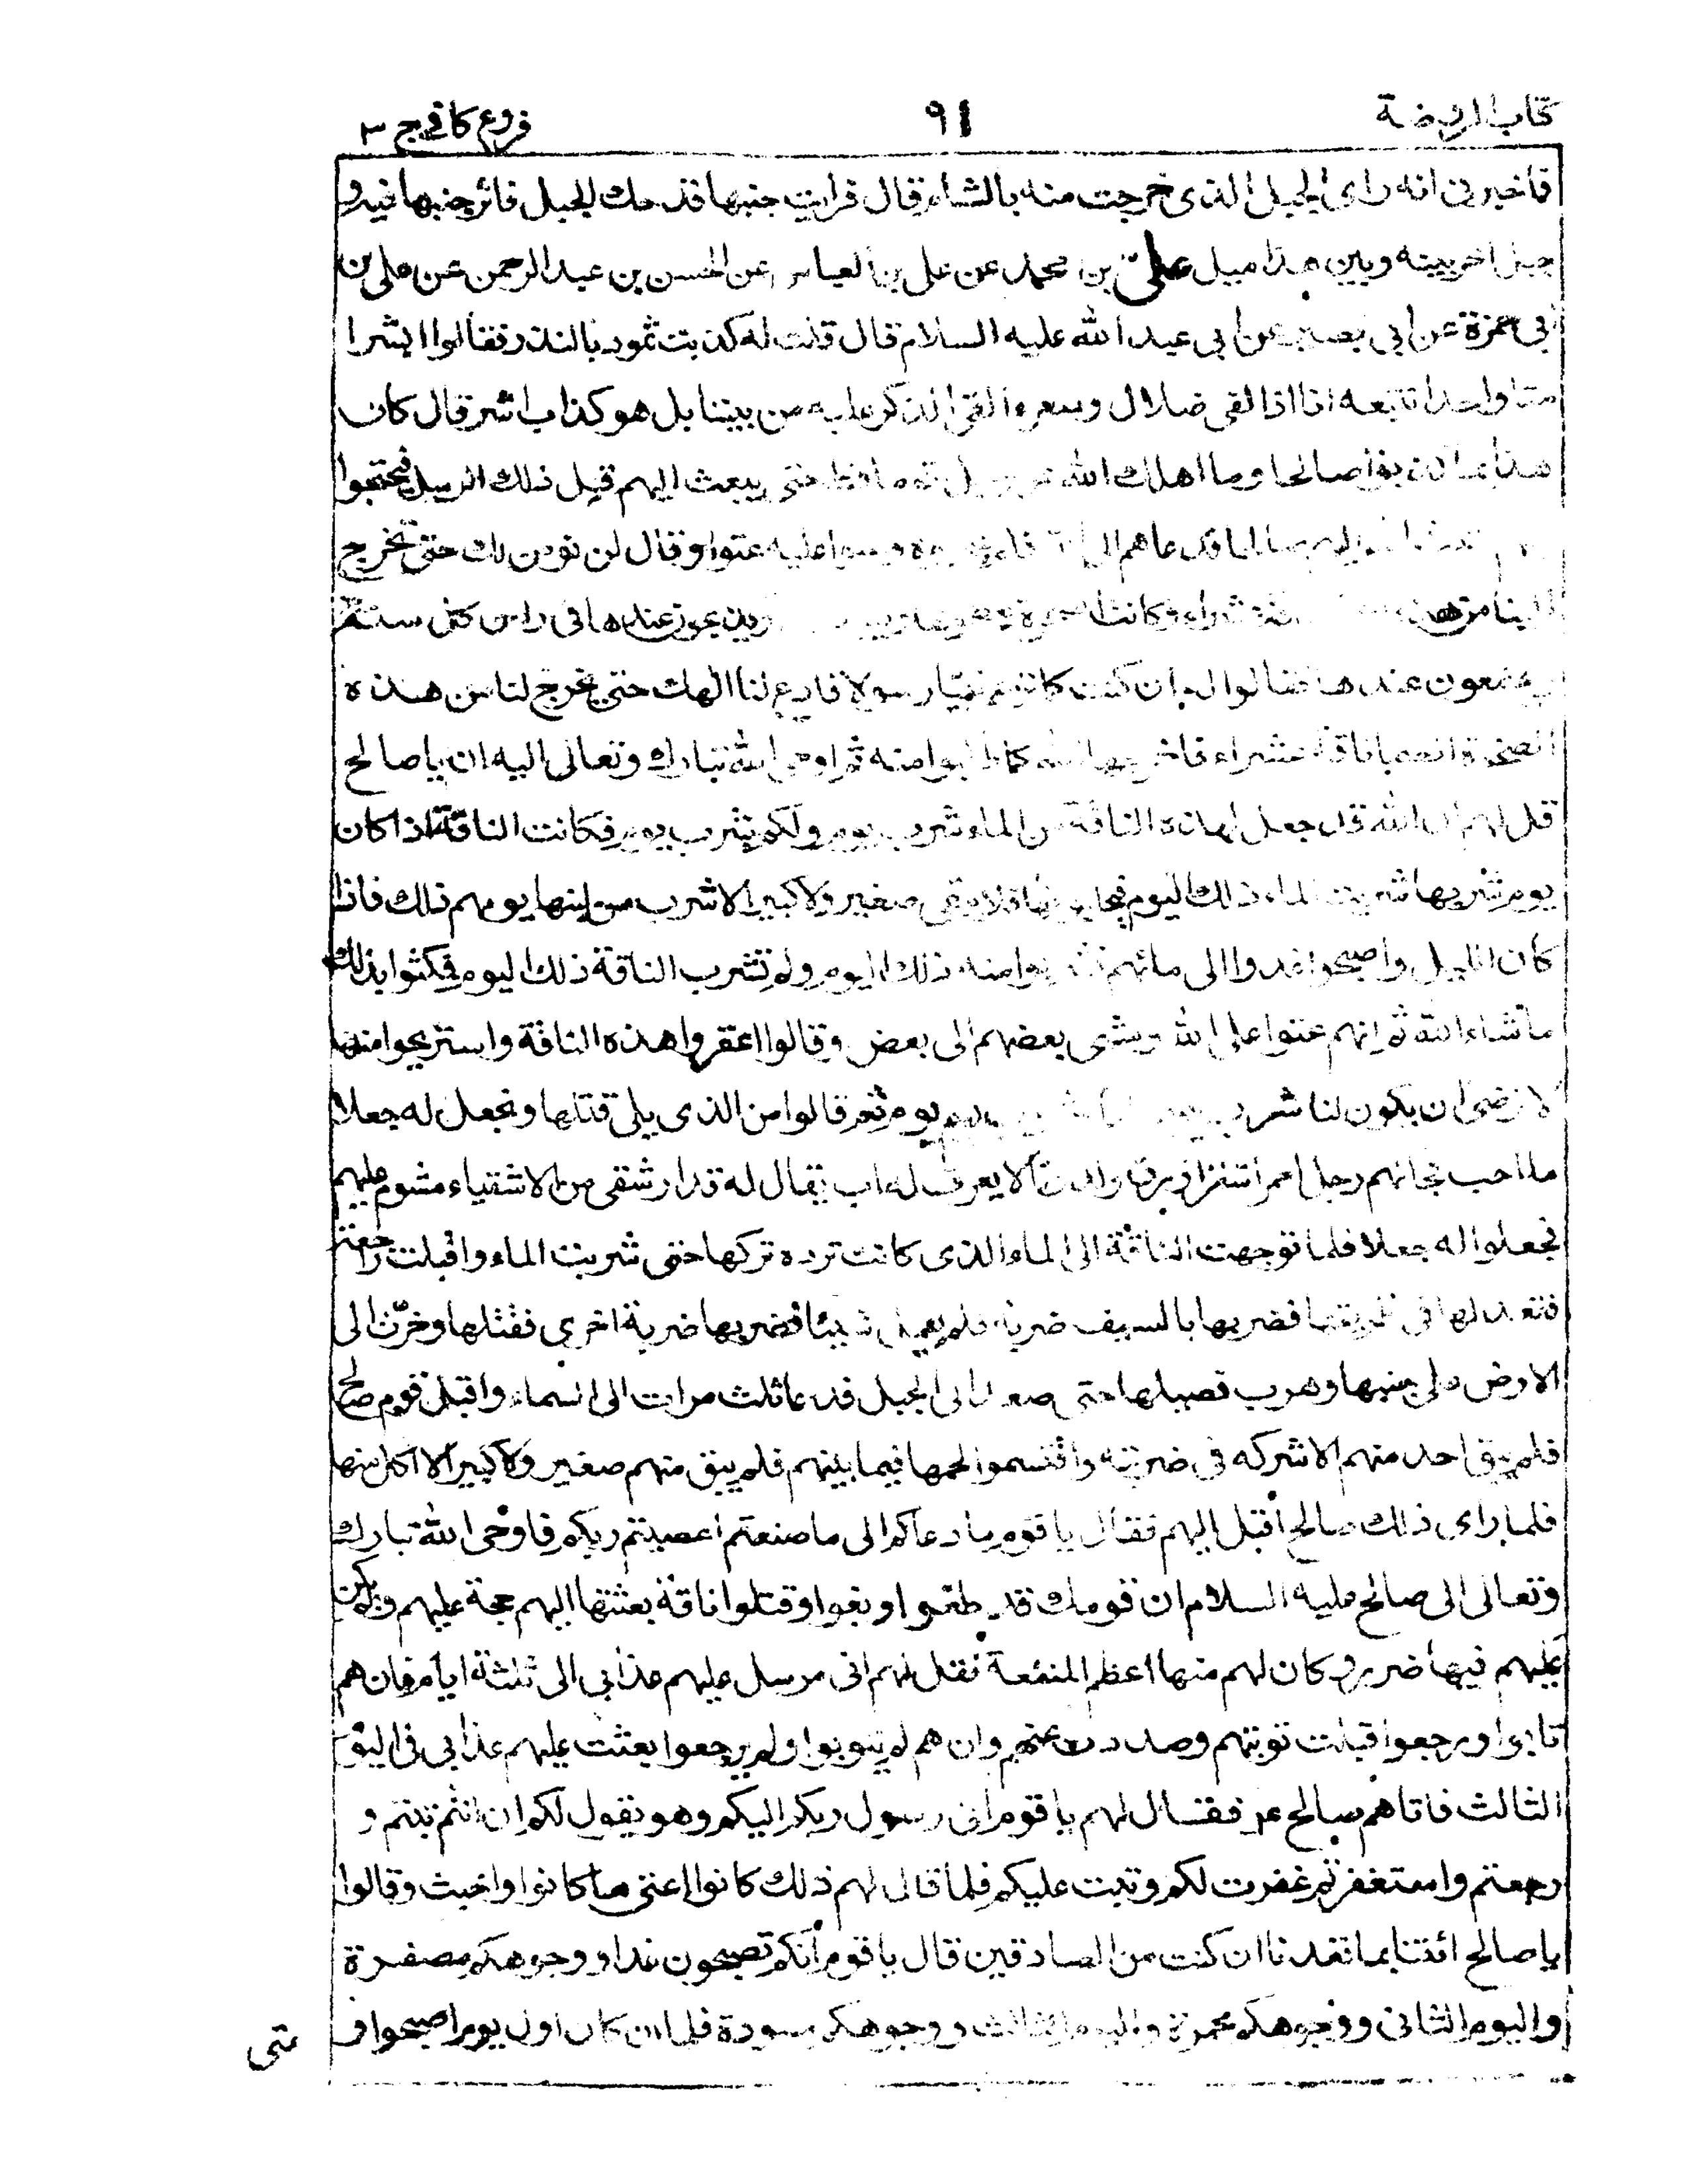 كتاب الروضة ٩١ فروع كافي ج ٣
فاخبرني انه راى الجبل الذي خرجت منه بالشام قال فرايت جنبها قد حك الجبل فاثر جنبها فيه و
جبل اخر بينه وبين هذا ميل علي بن محمد عن علي بن العباس عن الحسن بن عبد الرحمن عن علي بن
ابي حمزة عن ابي بصير عن ابي عبد الله عليه السلام قال قلت له كذبت ثمود بالنذر فقالوا ابشرا
منا واحدا نتبعه انا اذا لفي ضلال وسعر ءالقي الذكر عليه من بيننا بل هو كذاب اشر قال كان
هذا بما كذبوا صالحا وما اهلك الله عز وجل قوما قط حتى يبعث اليهم قبل ذلك الرسل فيحتجوا
صالحا فدعاهم الى فلم عليه عتوا وقال لن نومن لك حتى تخرج
لنا من هذه عشراء وكانت الصخرة ويعبدونها ويذبحون عندها في راس كل سنة
يجتمعون عندها فقالوا له ان كنت كما تزعم نبيا رسولا فادع لنا الهك حتى يخرج لنا من هذه
الصخرة الصماء ناقة عشراء فاخرجها الله كما طلبوا منه ثم اوحى الله تبارك وتعالى اليه ان يا صالح
قل لهم ان الله قد جعل لهذه الناقة من الماء شرب يوم ولكم شرب يوم فكانت الناقة اذا كان
يوم شربها شربت الماء ذلك اليوم فيحلبونها فلا يبقى صغير ولا كبير الا شرب من لبنها يومهم ذلك فاذا
كان الليل واصبحوا غدوا الى مائهم فشربوا منه ذلك اليوم ولم تشرب الناقة ذلك اليوم فمكثوا بذلك
ما شاء الله ثم انهم عتوا على الله ومشى بعضهم الى بعض وقالوا اعقروا هذه الناقة واستريحوا منها
لا نرضى ان يكون لنا شرب يوم ولها شرب يوم ثم قالوا من الذي يلي قتلها ونجعل له جعلا
ما احب فجائهم رجل احمر اشقر ازرق ولد زنا لا يعرف له اب يقال له قدار شقي من الاشقياء مشوم عليهم
فجعلوا له جعلا فلما توجهت الناقة الى الماء الذي كانت ترده تركها حتى شربت الماء واقبلت راجعة
فقعد لها في طريقها فضربها بالسيف ضربة فلم يعمل شيئا فضربها ضربة اخرى فقتلها وخرت الى
الارض على جنبها وهرب فصيلها حتى صعد الى الجبل فدعا ثلث مرات الى السماء واقبل قوم صالح
فلم يبق احد منهم الا شركه في ضربته واقتسموا لحمها فيما بينهم فلم يبق منهم صغير ولا كبير الا اكل منها
فلما راى ذلك صالح اقبل اليهم فقال يا قوم ما دعاكم الى ما صنعتم اعصيتم ربكم فاوحى الله تبارك
وتعالى الى صالح عليه السلام ان قومك قد طغوا وبغوا وقتلوا ناقة بعثتها اليهم حجة عليهم ولم يكن
عليهم فيها ضرر وكان لهم منها اعظم المنفعة فقل لهم اني مرسل عليهم عذابي الى ثلثة ايام فان هم
تابوا ورجعوا قبلت توبتهم وصددت عنهم وان هم لم يتوبوا ولم يرجعوا بعثت عليهم عذابي في اليوم
الثالث فاتاهم صالح ع م فقال لهم يا قوم اني رسول ربكم اليكم وهو يقول لكم ان انتم تبتم و
رجعتم واستغفرتم غفرت لكم وتبت عليكم فلما قال لهم ذلك كانوا اعتى ما كانوا واخبث وقالوا
يا صالح ائتنا بما تعدنا ان كنت من الصادقين قال يا قوم انكم تصبحون غدا ووجوهكم مصفرة
واليوم الثاني ووجوهكم محمرة واليوم الثالث ووجوهكم مسودة فلما ان كان اول يوم اصبحوا و